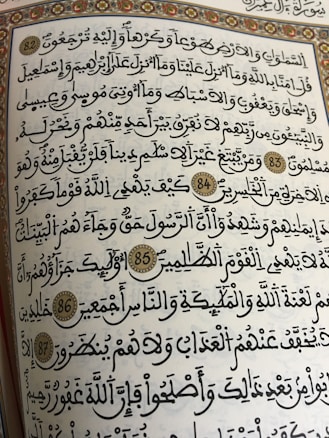 سورة آل عمران
السموات والارض طوعا وكرها وإليه ترجعون 82
قل ءامنا بالله وما أنزل علينا وما أنزل على إبراهيم وإسمعيل
وإسحق ويعقوب والاسباط وما أوتي موسى وعيسى
والنبيئون من ربهم لا نفرق بين أحد منهم ونحن له
مسلمون 83 ومن يبتغ غير الاسلم دينا فلن يقبل منه وهو
في الاخرة من الخسرين 84 كيف يهدي الله قوما كفروا
بعد إيمنهم وشهدوا أن الرسول حق وجاءهم البينت
والله لا يهدي القوم الظلمين 85 أولئك جزاؤهم أن
عليهم لعنة الله والملئكة والناس أجمعين 86 خلدين
فيها لا يخفف عنهم العذاب ولا هم ينظرون 87 إلا
الذين تابوا من بعد ذلك وأصلحوا فإن الله غفور رحيم